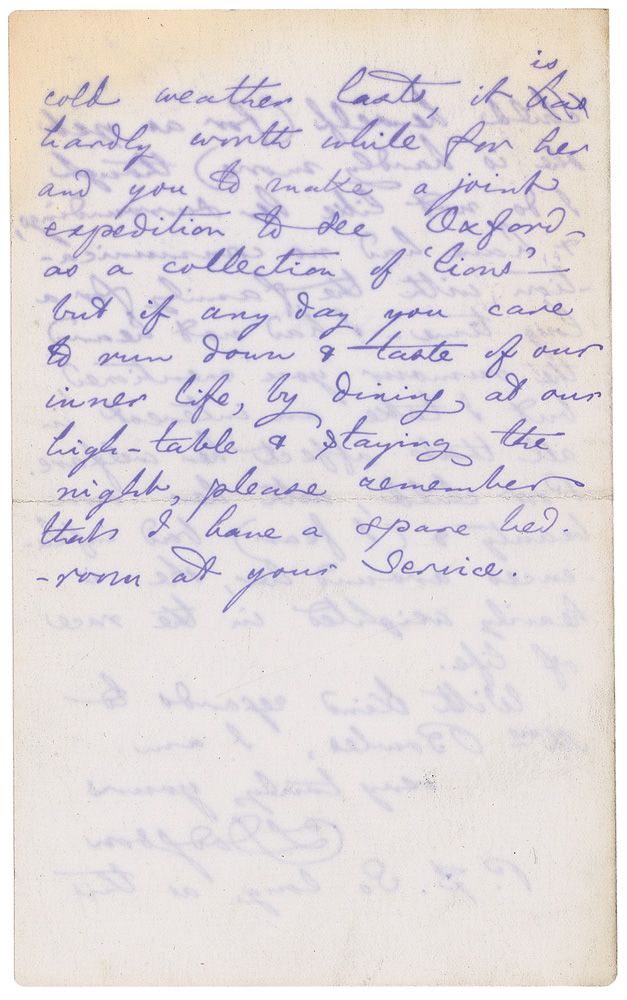 is
cold weather lasts, it has
hardly worth while for her
and you to make a joint
expedition to see Oxford,
as a collection of "lions" —
but if any day you care
to run down & taste of our
inner life, by dining at our
high-table & staying the
night, please remember
that I have a spare bed-
-room at your service.